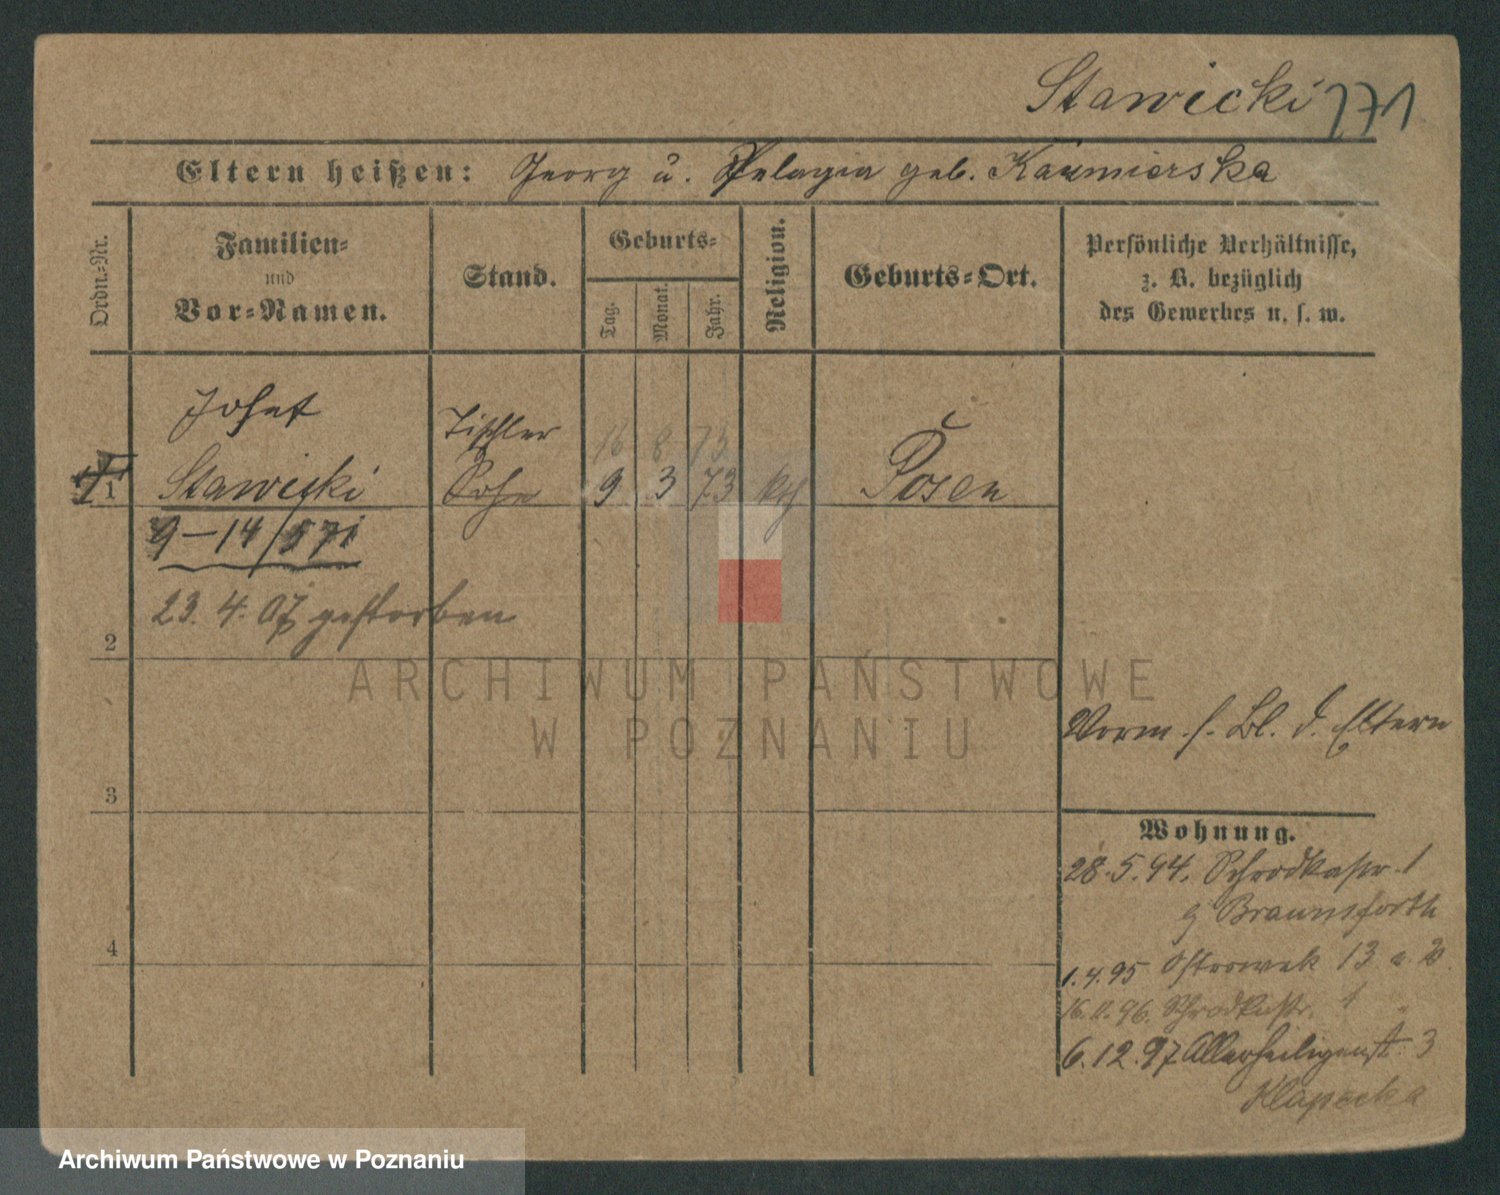 Stawicki 771
Eltern heißen: Georg u. Pelagia geb. Kaźmierska
Ordn.-Nr.
Familien-
und
Vor-Namen.
Stand.
Geburts-
Tag.
Monat.
Jahr.
Religion.
Geburts-Ort.
Persönliche Verhältnisse,
z. B. bezüglich
des Gewerbes u. s. w.
Josef
Tischler
16 8 73
1 Stawicki Sohn 9 3 73 kth Posen
9-14/571
23. 4. 07 gestorben
2
ARCHIWUM PAŃSTWOWE
W POZNANIU
Vorm. s. Bl. d. Eltern
3
Wohnung.
28.5.94. Schrodkastr. 1
b Braunsforth
4
1.4.95 Ostrowek 13
16.11.96. Schrodkastr. 1 "
6.12.97 Allerheiligenstr. 3
Klapecka
Archiwum Państwowe w Poznaniu